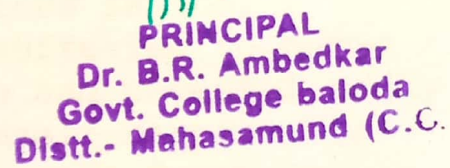 PRINCIPAL
Dr. B.R. Ambedkar
Govt. College baloda
Distt.- Mahasamund (C.G.